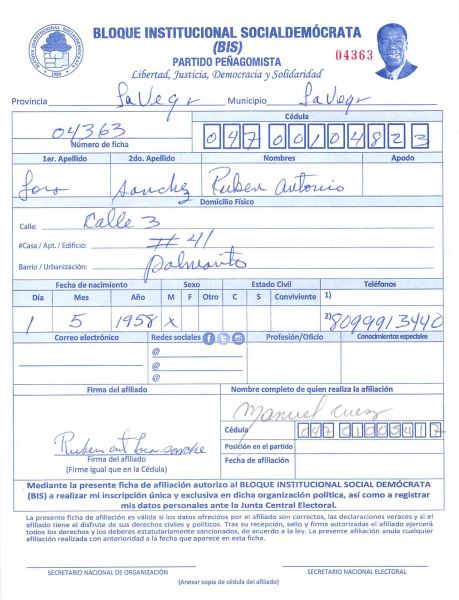 BLOQUE INSTITUCIONAL SOCIALDEMÓCRATA
BLOQUE INSTITUCIONAL SOCIALDEMÓCRATA
(BIS)
PARTIDO PEÑAGOMISTA
04363
Libertad, Justicia, Democracia y Solidaridad
Provincia La Vega Municipio La Vega
Cédula
04363 04700104823
Número de ficha
1er. Apellido 2do. Apellido Nombres Apodo
Sanchez Ruben Antonio
Domicilio Físico
Calle: Calle 3
#Casa / Apt. / Edificio: # 41
Barrio / Urbanización: Palmarito
Fecha de nacimiento Sexo Estado Civil Teléfonos
Día Mes Año M F Otro C S Conviviente 1)
1 5 1958 X 2) 8099913440
Correo electrónico Redes sociales Profesión/Oficio Conocimientos especiales
@
@
@
Firma del afiliado Nombre completo de quien realiza la afiliación
Manuel
Cédula 04701005417
Posición en el partido
Ruben ant sanche
Firma del afiliado
Fecha de afiliación
(Firme igual que en la Cédula)
Mediante la presente ficha de afiliación autorizo al BLOQUE INSTITUCIONAL SOCIAL DEMÓCRATA
(BIS) a realizar mi inscripción única y exclusiva en dicha organización política, así como a registrar
mis datos personales ante la Junta Central Electoral.
La presente ficha de afiliación es válida si los datos ofrecidos por el afiliado son correctos, las declaraciones veraces y si el
afiliado tiene el disfrute de sus derechos civiles y políticos. Tras su recepción, sello y firma autorizada el afiliado ejercerá
todos los derechos y los deberes estatutariamente sancionados, de acuerdo a la ley. La presente afiliación anula cualquier
afiliación realizada con anterioridad a la fecha que aparece en esta ficha.
SECRETARIO NACIONAL DE ORGANIZACIÓN SECRETARIO NACIONAL ELECTORAL
(Anexar copia de cédula del afiliado)